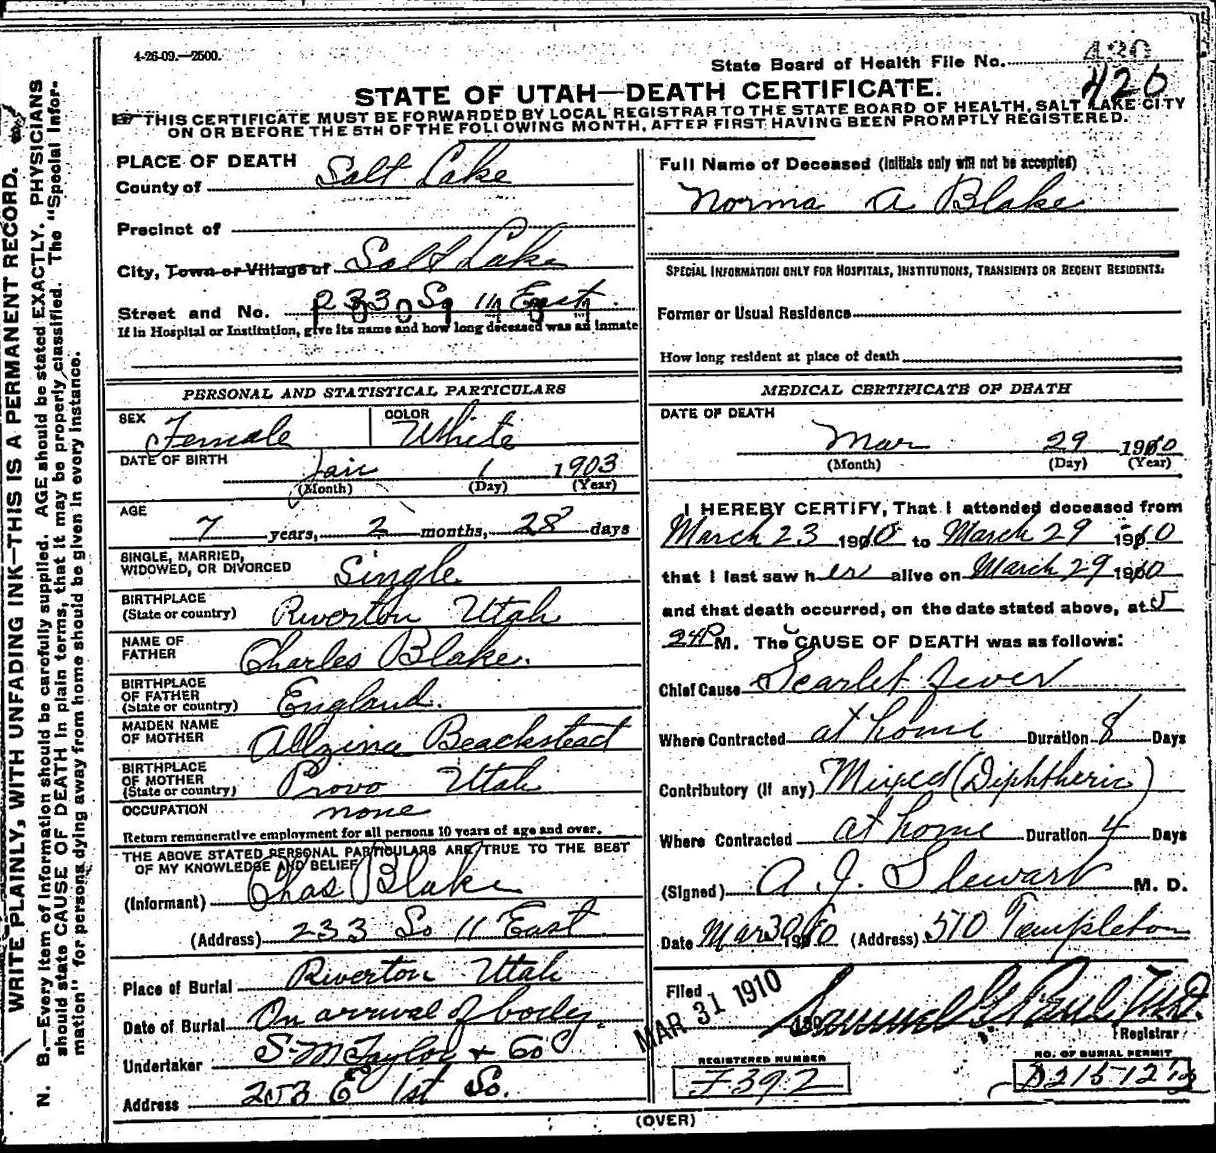 4-26-09.—2500.
State Board of Health File No. 430
426
STATE OF UTAH—DEATH CERTIFICATE.
☞ THIS CERTIFICATE MUST BE FORWARDED BY LOCAL REGISTRAR TO THE STATE BOARD OF HEALTH, SALT LAKE CITY
ON OR BEFORE THE 5TH OF THE FOLLOWING MONTH, AFTER FIRST HAVING BEEN PROMPTLY REGISTERED.
WRITE PLAINLY, WITH UNFADING INK—THIS IS A PERMANENT RECORD.
N. B.—Every item of information should be carefully supplied. AGE should be stated EXACTLY. PHYSICIANS
should state CAUSE OF DEATH in plain terms, that it may be properly classified. The "Special Infor-
mation" for persons dying away from home should be given in every instance.
PLACE OF DEATH
County of Salt Lake
Precinct of
City, Town or Village of Salt Lake
Street and No. 233 So 11 East
If in Hospital or Institution, give its name and how long deceased was an inmate
PERSONAL AND STATISTICAL PARTICULARS
SEX Female COLOR White
DATE OF BIRTH Jan 1 1903
(Month) (Day) (Year)
AGE
7 years, 2 months, 28 days
SINGLE, MARRIED,
WIDOWED, OR DIVORCED Single
BIRTHPLACE
(State or country) Riverton Utah
NAME OF
FATHER Charles Blake.
BIRTHPLACE
OF FATHER
(State or country) England.
MAIDEN NAME
OF MOTHER Allzina Beackstead
BIRTHPLACE
OF MOTHER
(State or country) Provo Utah
OCCUPATION none
Return remunerative employment for all persons 10 years of age and over.
THE ABOVE STATED PERSONAL PARTICULARS ARE TRUE TO THE BEST
OF MY KNOWLEDGE AND BELIEF
(Informant) Chas Blake
(Address) 233 So 11 East
Place of Burial Riverton Utah
Date of Burial On arrival of body.
Undertaker S. M. Taylor & Co
Address 253 E 1st So.
Full Name of Deceased (Initials only will not be accepted)
Norma A Blake
SPECIAL INFORMATION ONLY FOR HOSPITALS, INSTITUTIONS, TRANSIENTS OR RECENT RESIDENTS:
Former or Usual Residence
How long resident at place of death
MEDICAL CERTIFICATE OF DEATH
DATE OF DEATH
Mar 29 1910
(Month) (Day) (Year)
I HEREBY CERTIFY, That I attended deceased from
March 23 1910 to March 29 1910
that I last saw her alive on March 29 1910
and that death occurred, on the date stated above, at 5
24 P M. The CAUSE OF DEATH was as follows:
Chief Cause Scarlet fever
Where Contracted at home Duration 8 Days
Contributory (If any) Mixed (Diphtheric)
Where Contracted at home Duration 4 Days
(Signed) A. J. Stewart M. D.
Date Mar 30 1910 (Address) 510 Templeton
Filed MAR 31 1910 190 Samuel G Paul M.D.
Registrar
REGISTERED NUMBER
F392
NO. OF BURIAL PERMIT
(OVER)